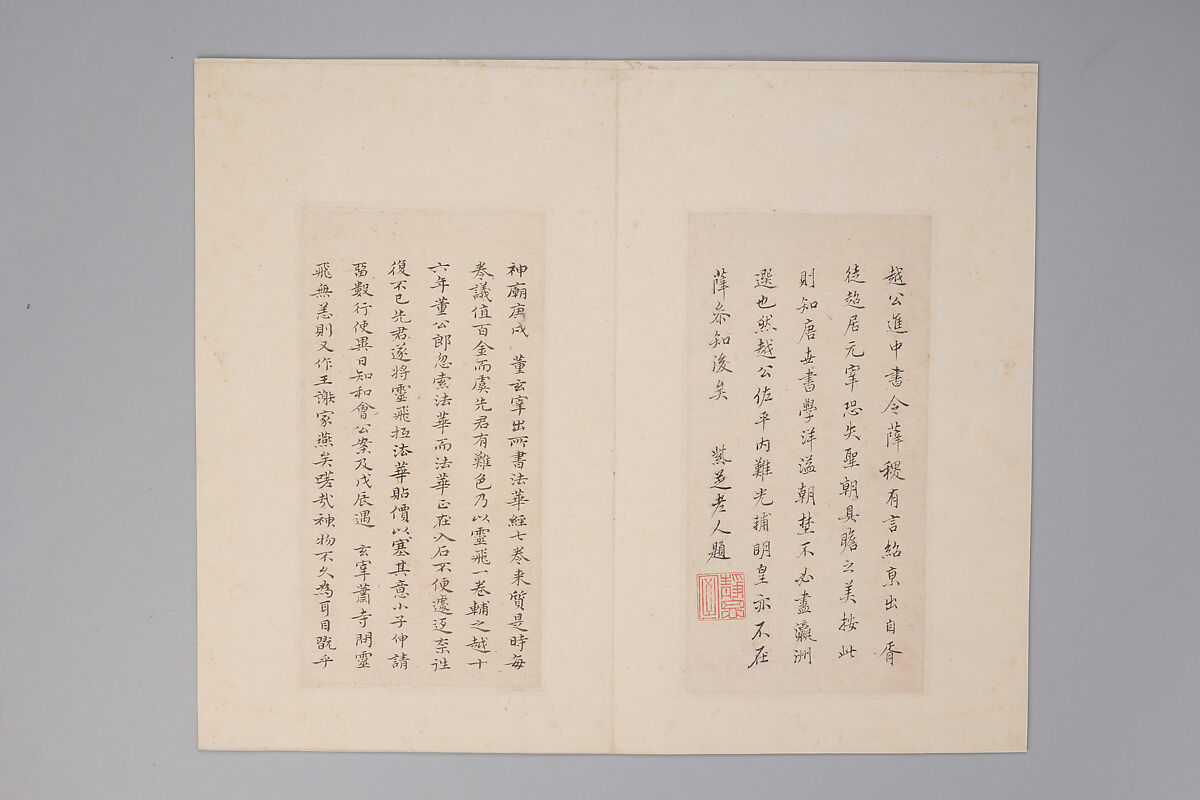 越公進中書令薛稷有言紹京出自胥
徒超居元宰恐失聖朝具瞻之美按此
則知唐世書學洋溢朝埜不必盡瀛洲
選也然越公佐平内難光輔明皇亦不在
薛叅知後矣　紫芝老人題
神廟庚戌　董玄宰出所書法華經七卷来質是時每
卷議值百金而虞先君有難色乃以靈飛一卷輔之越十
六年董公郎忽索法華而法華正在入石不便遽返奈誰
復不已先君遂將靈飛抵法華貼價以塞其意小子伸請
留數行使異日知和會公案及戊辰遇　玄宰蕭寺問靈
飛無恙則又作王謝家燕矣嗟哉神物不久為耳目翫乎